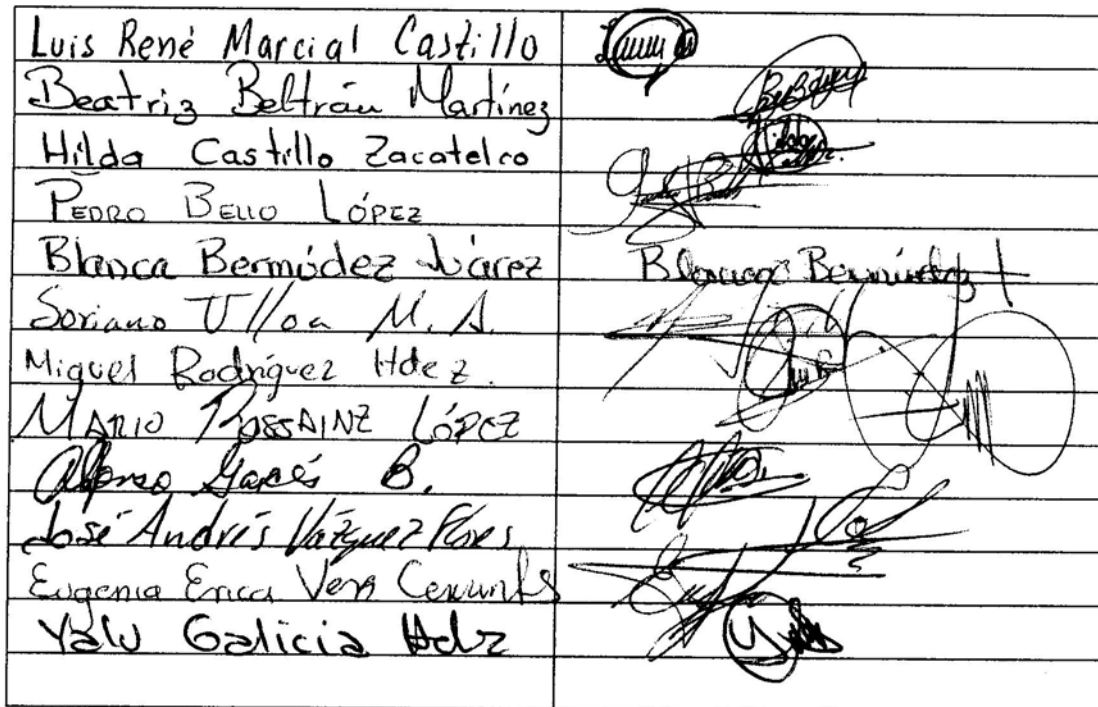 Luis René Marcial Castillo
Beatriz Beltrán Martínez
Hilda Castillo Zacatelco
PEDRO BELLO LÓPEZ
Blanca Bermúdez Juárez Blanca Bermúdez J
Soriano Ulloa M. A.
Miguel Rodríguez Hdez.
MARIO ROSSAINZ LÓPEZ
Alfonso Garcés B.
José Andrés Vázquez Flores
Eugenia Erica Vera Cervantes
Yalu Galicia Hdz